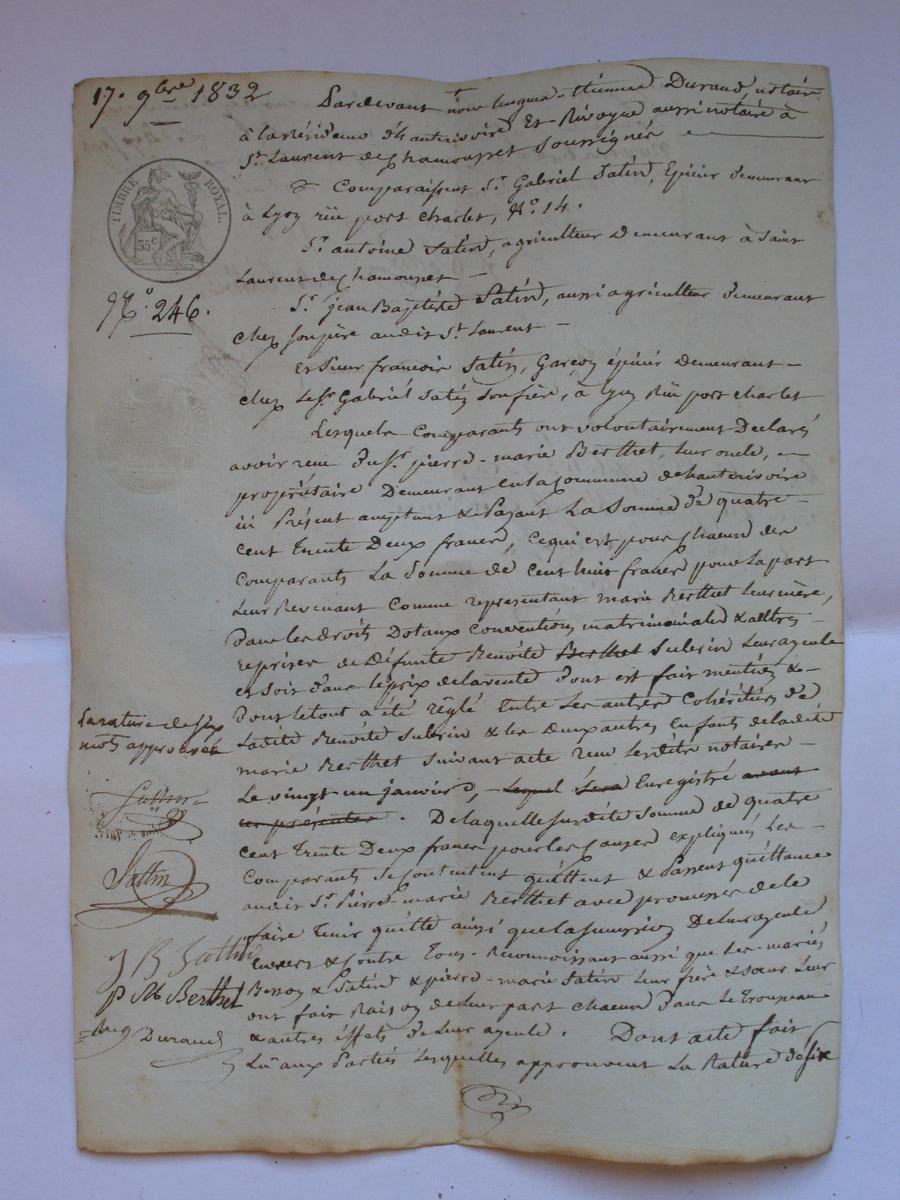 17. 9bre 1832
Pardevant nous hugues-étienne Durand, notaire
à la résidence d'hauterivoire Et Rivoyre aussi notaire à
St. Laurent de chamousset soussignés
Comparaissent Sr. Gabriel Satin, Epicier demeurant
à Lyon rüe port charlet, No. 14.
Sr. antoine Satin, agriculteur Demeurant à Saint
Laurent de chamousset —
Sr. jean Baptiste Satin, aussi agriculteur demeurant
chez son père audit St. Laurent —
Et Sieur francois Satin, Garçon épicier Demeurant —
chez Le Sr. Gabriel Satin son frère, à Lyon Rüe port charlet
Lesquels Comparants ont volontairement Déclaré
avoir recu du Sr. pierre-marie Berthet, leur oncle, —
propriétaire Demeurant en la commune d'hauterivoire
ici Présent acceptant & Payant La Somme de quatre
cent Trente Deux francs, ce qui est pour chacun des
Comparants La Somme de Cent huit francs pour la part
Leur Revenant Comme representant marie Berthet Leur mère,
dans les droits Dotaux Conventions matrimoniales & autres
reprises de Défunte Benoite Berthet Subrin Leur ayeule
et soit dans le prix de la vente dont est fait mention & —
dont le tout a été réglé Entre Les autres Cohéritiers de
Ladite Benoite Subrin & les Deux autres Enfants de la dite
marie Berthet Suivant acte recu Lesdits notaires —
Le vingt un janvier, — Lequel sera Enregistré avant
les présentes. De laquelle susdite Somme de quatre
cent Trente Deux francs pour les causes expliquées Les —
Comparants se contentent quittent & Passent quittance
audit Sr. Pierre-marie Berthet avec promesse de le
faire Tenir quitte ainsi que la succession De leur ayeule
Envers & Contre Tous. Reconnoissant aussi que Les mariés
& Satin & pierre-marie Satin Leur frère & sœur Leur
ont fait Raison de Leur part chacun dans Le Troupeau
& autres éffets de Leur ayeule. Dont acte fait
Lu aux Parties Lesquelles approuvent La Rature de six
TIMBRE ROYAL.
35c
No. 246.
La rature de six
mots approuvée
Sattin
Sattin
J B Sattin
P M Berthet
hug
Durand